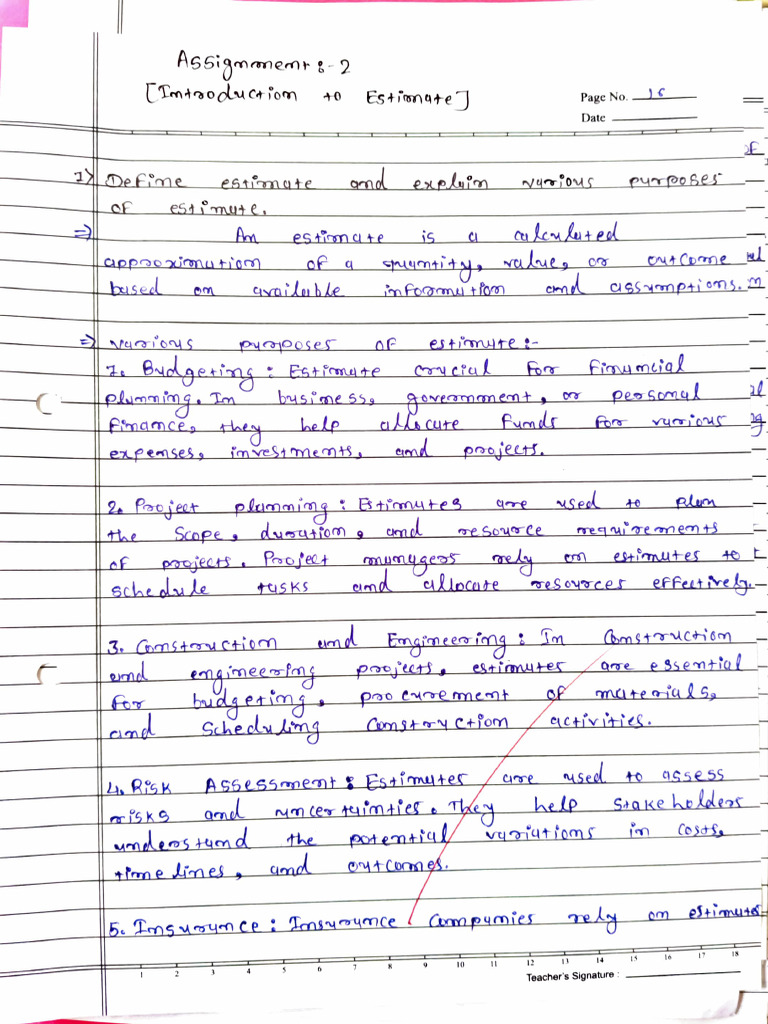 Assignment:-2
[Introduction to Estimate]
Page No. 16
Date
1) Define estimate and explain various purposes
of estimate.
=> An estimate is a calculated
approximation of a quantity, value, or outcome
based on available information and assumptions.
=> various purposes of estimate:-
1. Budgeting: Estimate crucial for financial
planning. In business, government, or personal
finance, they help allocate funds for various
expenses, investments, and projects.
2. Project planning: Estimates are used to plan
the scope, duration, and resource requirements
of projects. Project managers rely on estimates to
schedule tasks and allocate resources effectively.
3. Construction and Engineering: In Construction
and engineering projects, estimates are essential
for budgeting, procurement of materials,
and scheduling construction activities.
4. Risk Assessment: Estimates are used to assess
risks and uncertainties. They help stakeholders
understand the potential variations in costs,
timelines, and outcomes.
5. Insurance: Insurance companies rely on estimates
1 2 3 4 5 6 7 8 9 10 11 12 13 14 15 16 17 18
Teacher's Signature :